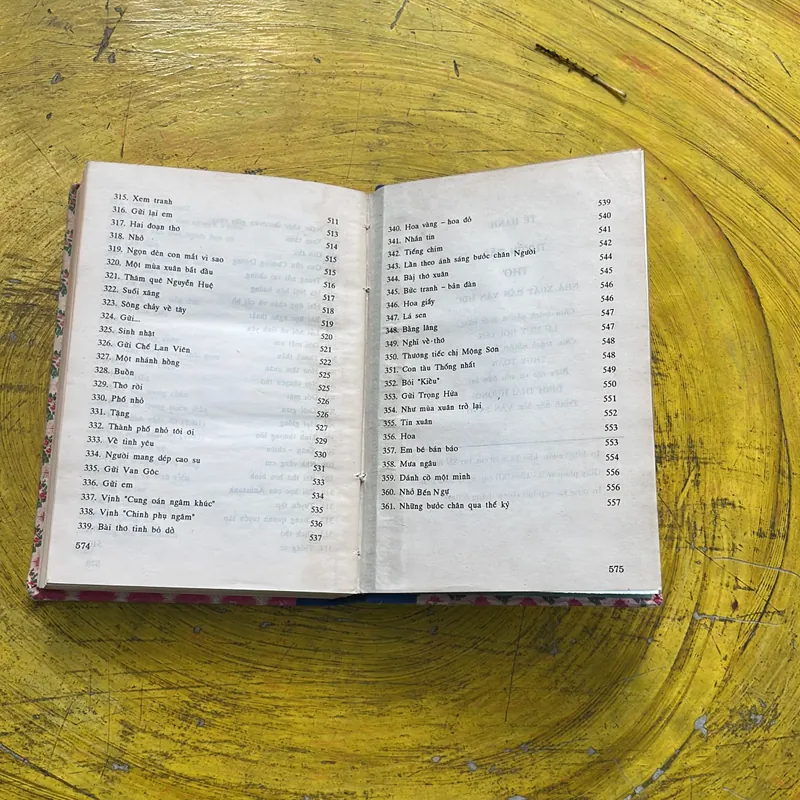 315. Xem tranh 511
316. Gửi lại em 513
317. Hai đoạn thơ 514
318. Nhớ 515
319. Ngọn đèn con mắt vì sao 515
320. Một mùa xuân bắt đầu 516
321. Thăm quê Nguyễn Huệ 517
322. Suối xăng 518
323. Sông chảy về tây 519
324. Gửi... 520
325. Sinh nhật 521
326. Gửi Chế Lan Viên 522
327. Một nhánh hồng 525
328. Buồn 525
329. Thơ rơi 526
330. Phố nhỏ 526
331. Tặng 527
332. Thành phố nhỏ tôi ơi 529
333. Về tình yêu 530
334. Người mang dép cao su 531
335. Gửi Van Gốc 533
336. Gửi em 534
337. Vịnh "Cung oán ngâm khúc" 535
338. Vịnh "Chinh phụ ngâm" 536
339. Bài thơ tình bỏ dở 537
574
340. Hoa vàng – hoa đỏ 539
341. Nhắn tin 540
342. Tiếng chim 541
343. Lần theo ánh sáng bước chân Người 542
344. Bài thơ xuân 544
345. Bức tranh – bản đàn 545
346. Hoa giấy 546
347. Lá sen 546
348. Bằng lăng 547
349. Nghĩ về thơ 547
350. Thương tiếc chị Mộng Sơn 548
351. Con tàu Thống nhất 548
352. Bói "Kiều" 549
353. Gửi Trọng Hứa 550
354. Như mùa xuân trở lại 551
355. Tin xuân 552
356. Hoa 553
357. Em bé bán báo 553
358. Mưa ngâu 554
359. Đánh cờ một mình 556
360. Nhớ Bến Ngự 556
361. Những bước chân qua thế kỷ 557
575